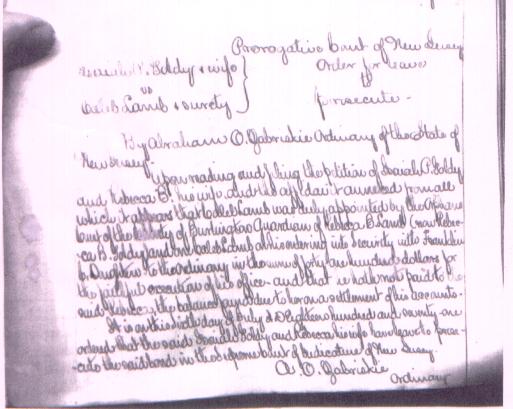 Prerogative Court of New Jersey
Isaiah P. Goldy & wife }
Order for leave
vs
to
Caleb Lamb & surety }
prosecute -
By Abraham O. Zabriskie Ordinary of the State of
New Jersey.
Upon reading and filing the petition of Isaiah P. Goldy
and Rebecca B. his wife, and the affidavit annexed from all
which it appears that Caleb Lamb was duly appointed by the Orphans
Court of the County of Burlington Guardian of Rebecca B. Lamb (now Rebec-
ca B. Goldy) and Caleb Lamb entering into security with Franklin
to the Ordinary in the sum of hundred dollars for
the faithful execution of his office - and that he hath not paid to the
said Rebecca, the balance due to her on a settlement of his accounts -
It is on this day of July A D Eighteen hundred and seventy-one
ordered that the said Isaiah Goldy and Rebecca his wife have leave to prose-
cute the said bond in the Supreme Court of Judicature of New Jersey
A. O. Zabriskie
Ordinary